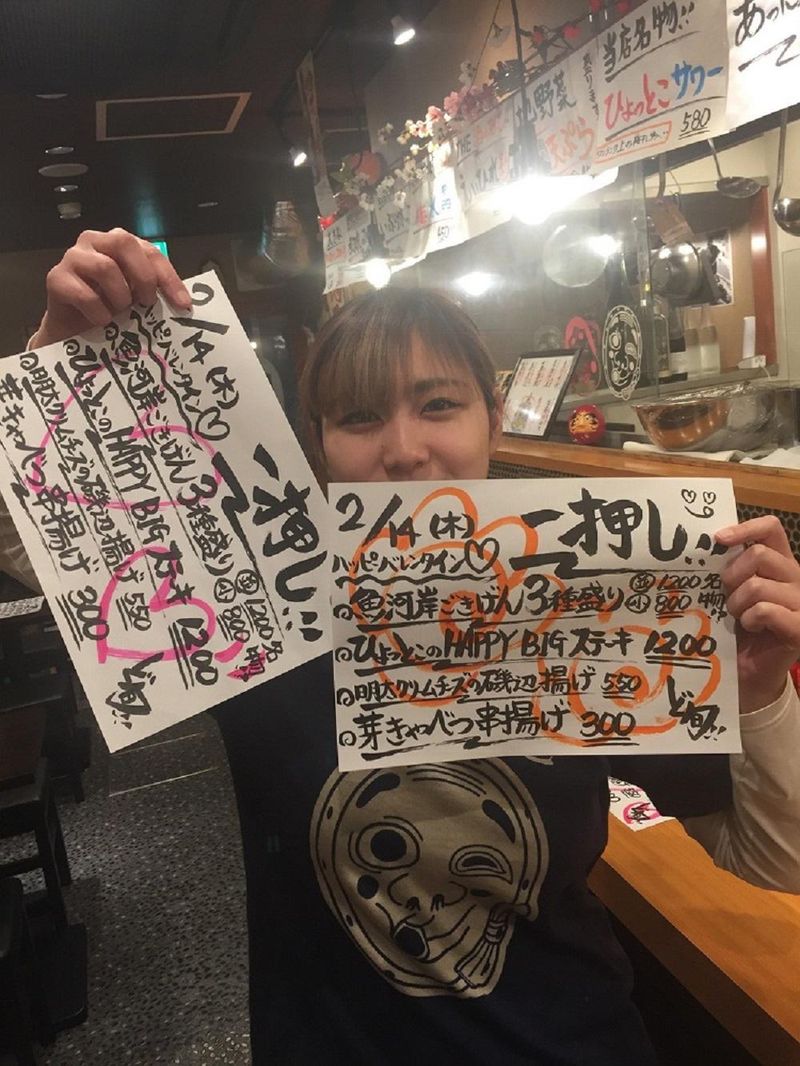 あった
当店名物!!
ひょっとこサワー
580
地野菜
天ぷら
THE
450
2/14(木)
一押し!!
ハッピバレンタイン♡
魚河岸ごきげん3種盛り 並1200 小800 名物
ひょっとこのHAPPY BIGステーキ 1200
明太クリームチーズの磯辺揚げ 550
芽きゃべつ串揚げ 300
ど旬!!
2/14(木) 一押し!!
ハッピバレンタイン♡
魚河岸ごきげん3種盛り 並1200 小800 名物
ひょっとこのHAPPY BIGステーキ 1200
明太クリムチーズの磯辺揚げ 550
芽きゃべつ串揚げ 300
ど旬!!